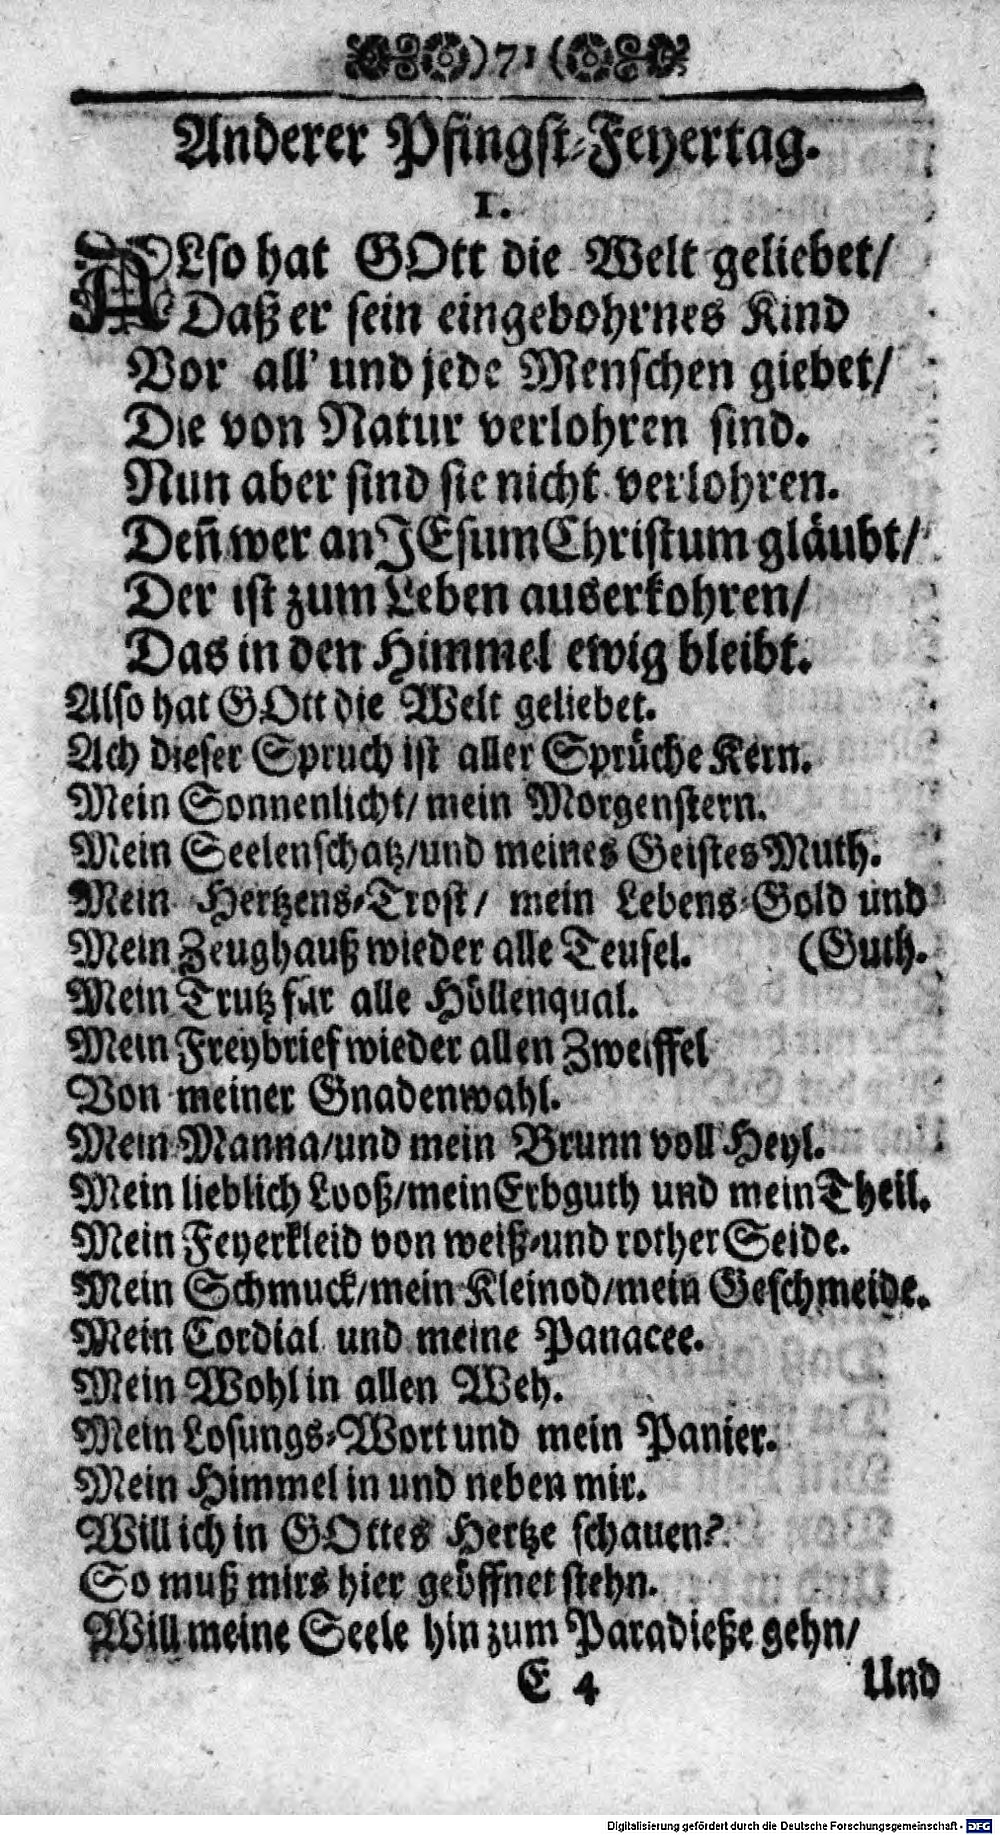 )71(
Anderer Pfingst-Feyertag.
1.
ALso hat GOtt die Welt geliebet/
Daß er sein eingebohrnes Kind
Vor all' und jede Menschen giebet/
Die von Natur verlohren sind.
Nun aber sind sie nicht verlohren.
Deñ wer an JEsum Christum gläubt/
Der ist zum Leben auserkohren/
Das in den Himmel ewig bleibt.
Also hat GOtt die Welt geliebet.
Ach dieser Spruch ist aller Sprüche Kern.
Mein Sonnenlicht/ mein Morgenstern.
Mein Seelenschatz/und meines Geistes Muth.
Mein Hertzens-Trost/ mein Lebens-Gold und
Mein Zeughauß wieder alle Teufel. (Guth.
Mein Trutz für alle Höllenqual.
Mein Freybrief wieder allen Zweiffel
Von meiner Gnadenwahl.
Mein Manna/und mein Brunn voll Heyl.
Mein lieblich Looß/mein Erbguth und mein Theil.
Mein Feyerkleid von weiß-und rother Seide.
Mein Schmuck/mein Kleinod/mein Geschmeide.
Mein Cordial und meine Panacee.
Mein Wohl in allen Weh.
Mein Losungs-Wort und mein Panier.
Mein Himmel in und neben mir.
Will ich in GOttes Hertze schauen?
So muß mirs hier geöffnet stehn.
Will meine Seele hin zum Paradieße gehn/
E 4 Und
Digitalisierung gefördert durch die Deutsche Forschungsgemeinschaft - DFG